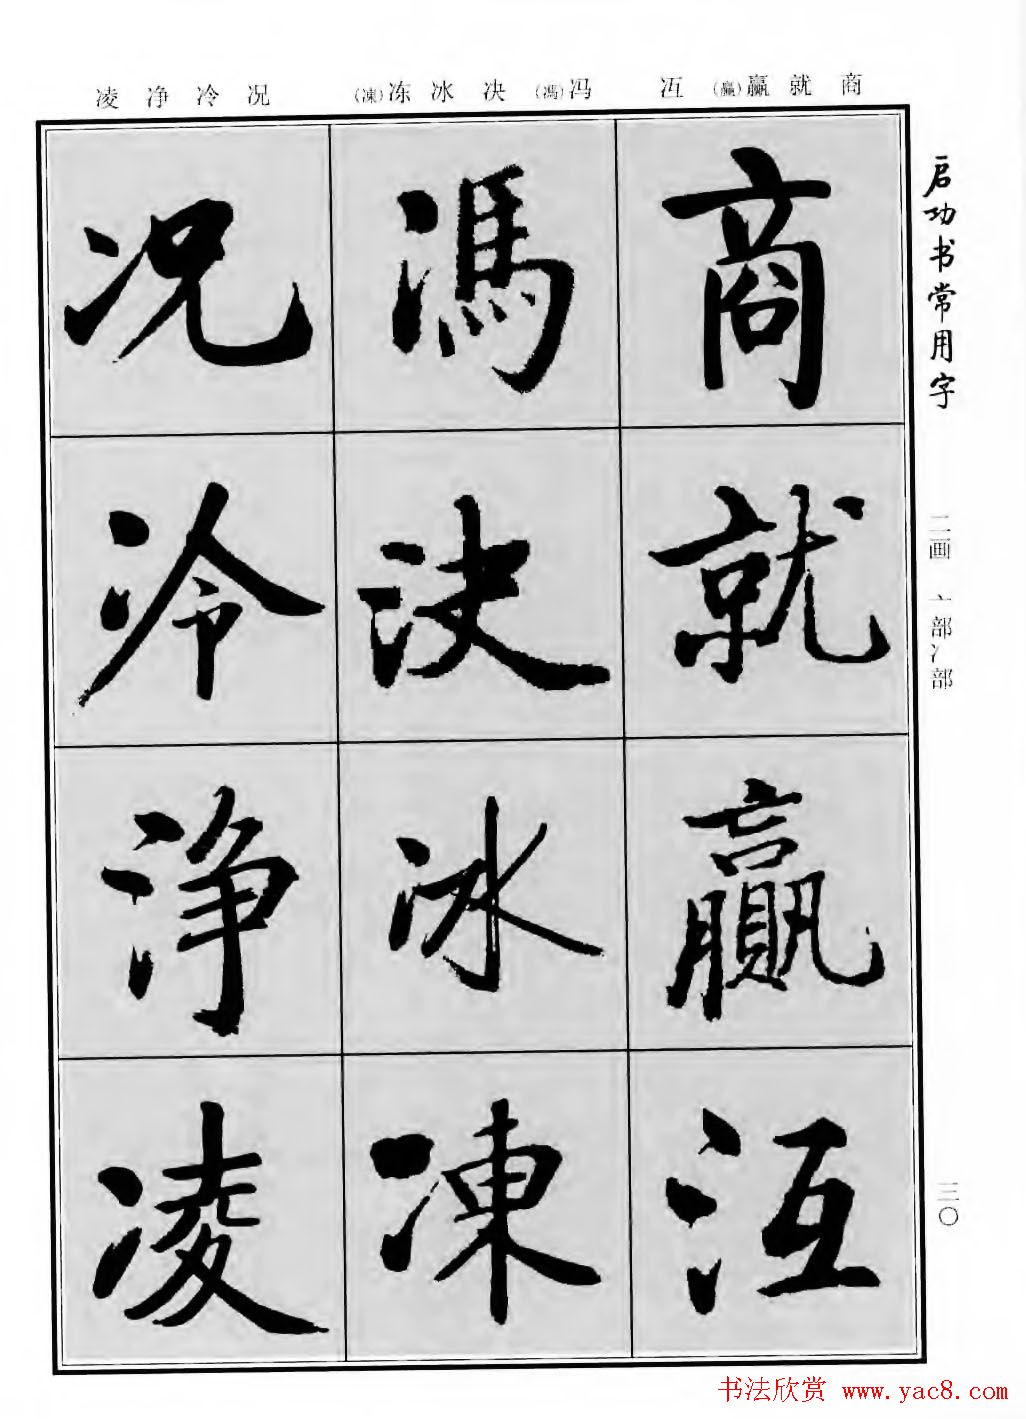 商就赢(贏)冱
冯(馮)决冰冻(凍)
况冷净凌
启功书常用字
二画 亠部冫部
三〇
商就贏冱
馮决冰凍
况冷净凌
书法欣赏 www.yac8.com